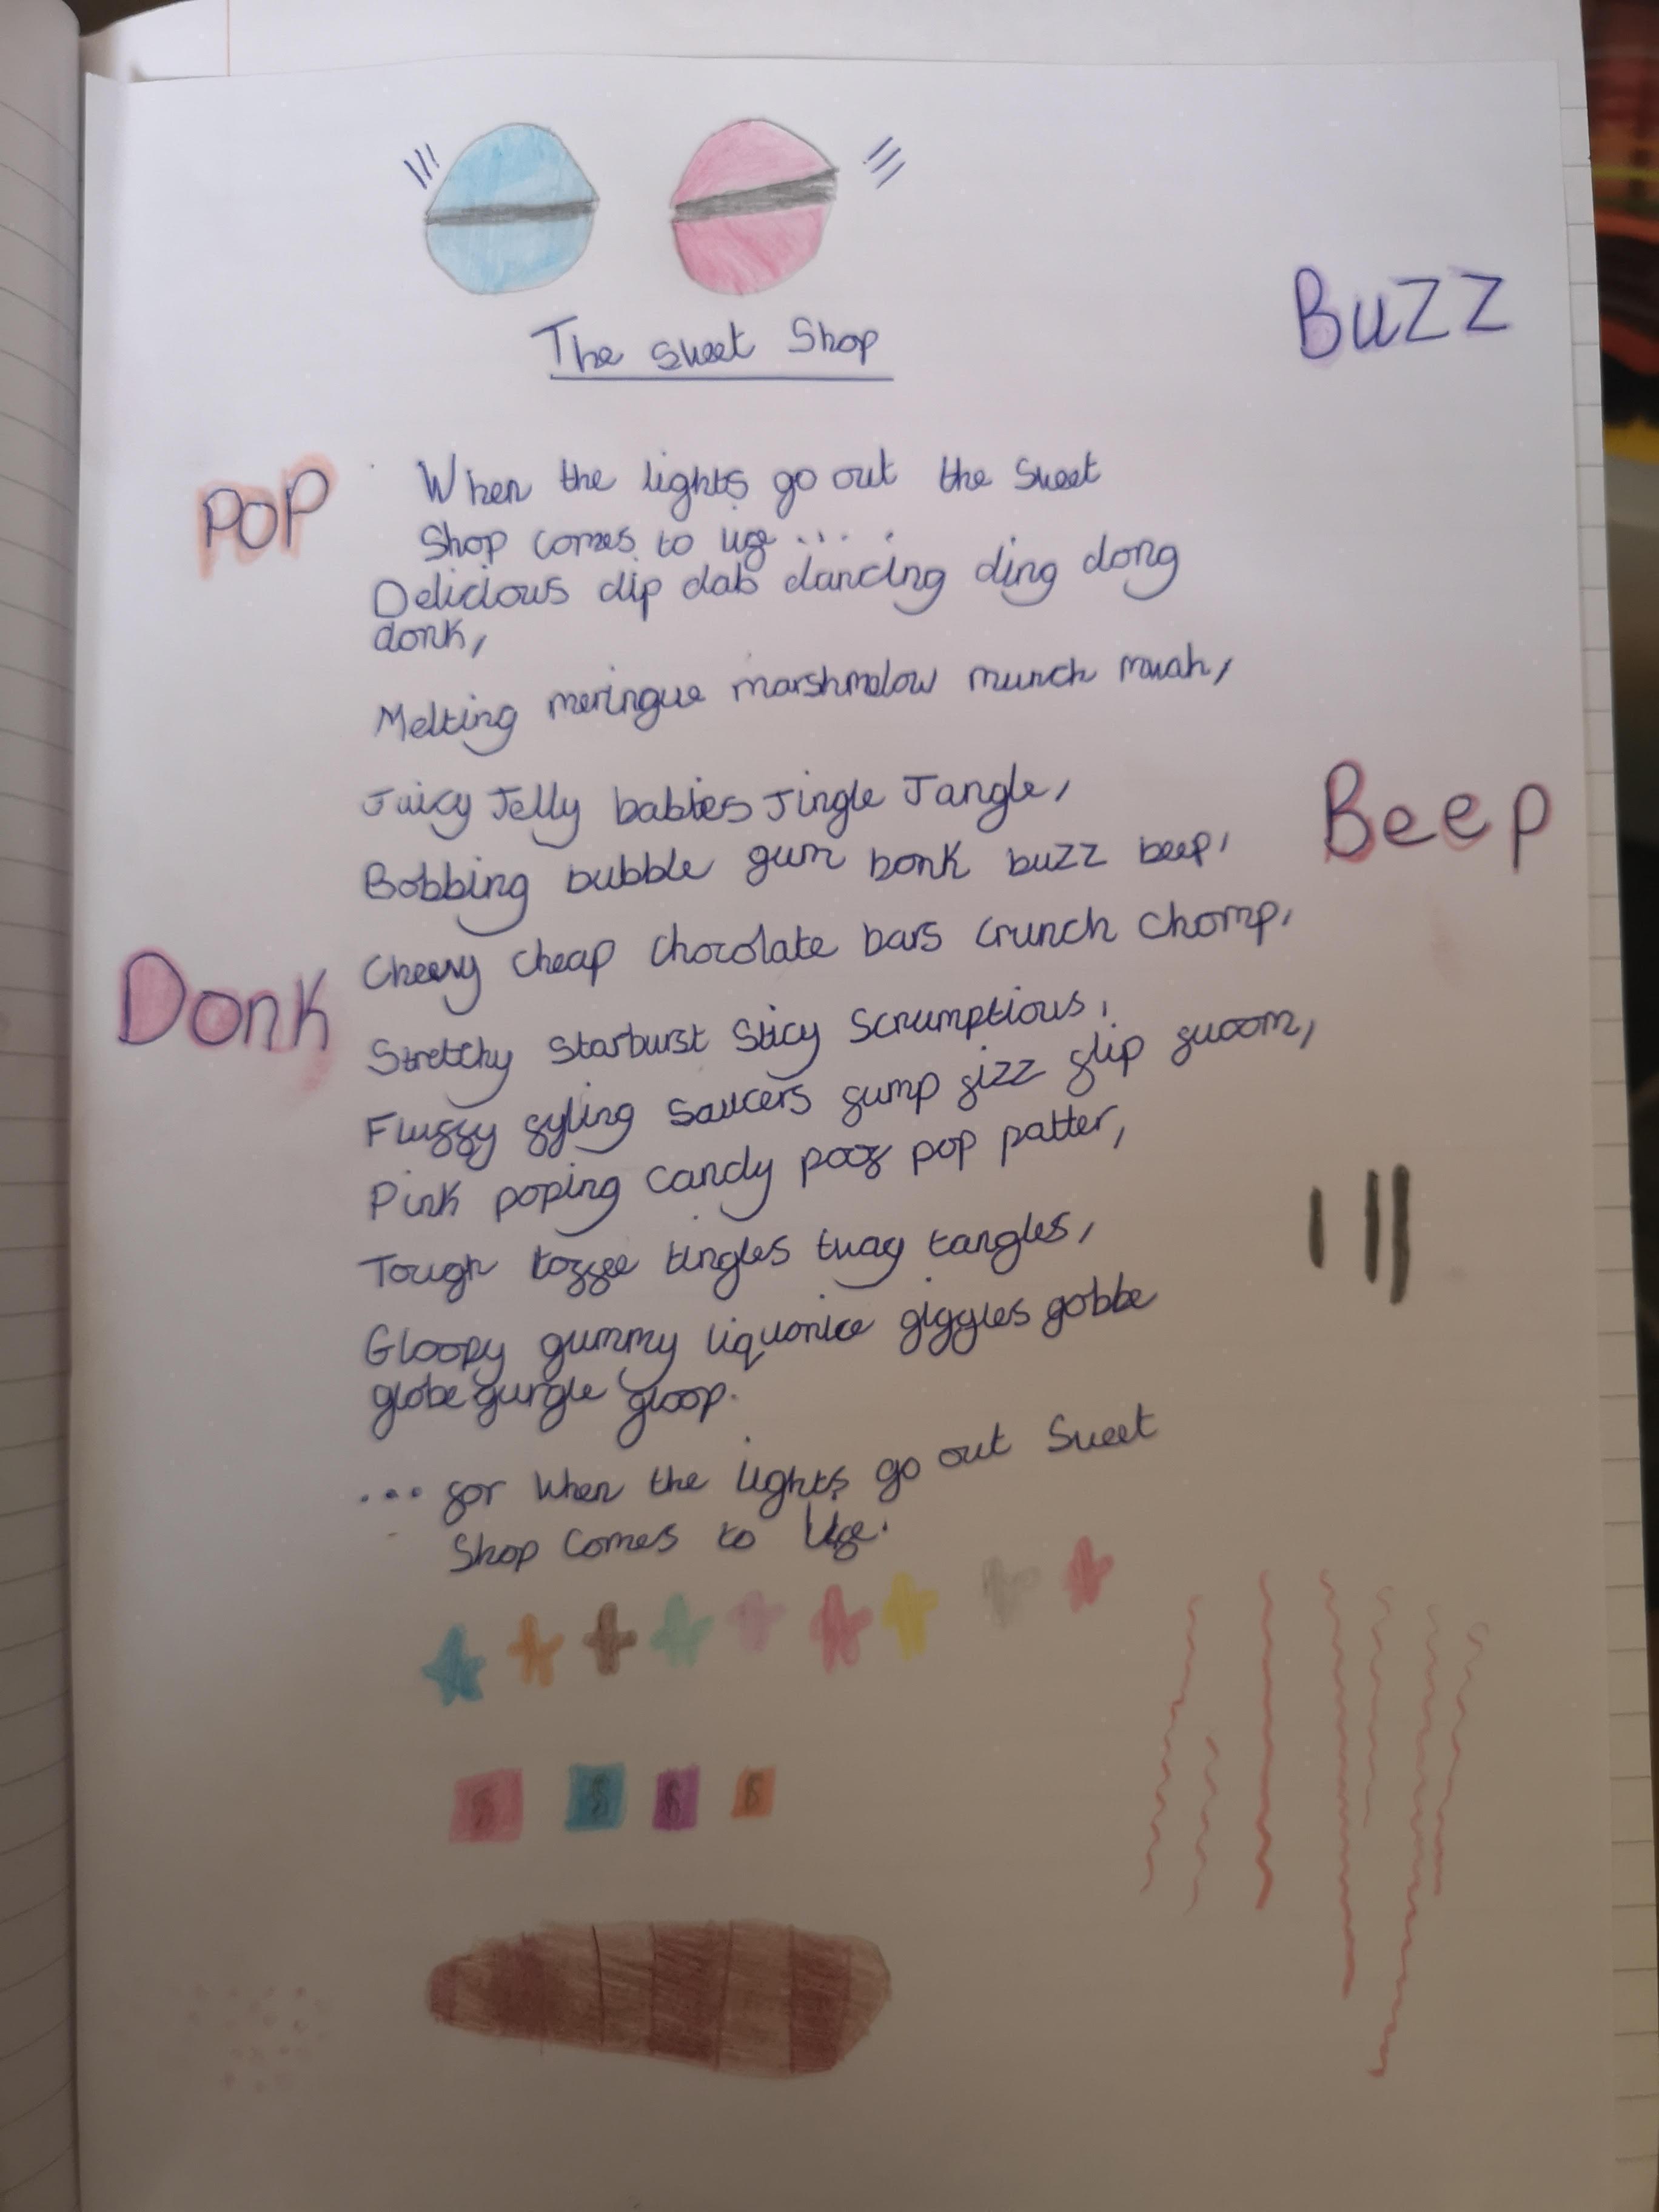 The sweet Shop
Buzz
POP
When the lights go out the Sweet
Shop comes to life ....
Delicious dip dab dancing ding dong
donk,
Melting meringue marshmalow munch mwah,
Juicy Jelly babies Jingle Jangle,
Beep
Bobbing bubble gum bonk buzz beep,
Cheesy cheap chocolate bars crunch chomp,
Donk
Stretchy Starburst Sticy Scrumptious,
Fluffy fyling Saucers fump fizz flip fwoom,
Pink poping candy poof pop patter,
Tough toffee tingles twag tangles,
Gloopy gummy liquorice giggles gobbe
globe gurgle gloop.
... for when the lights go out Sweet
Shop comes to life.
S S S S